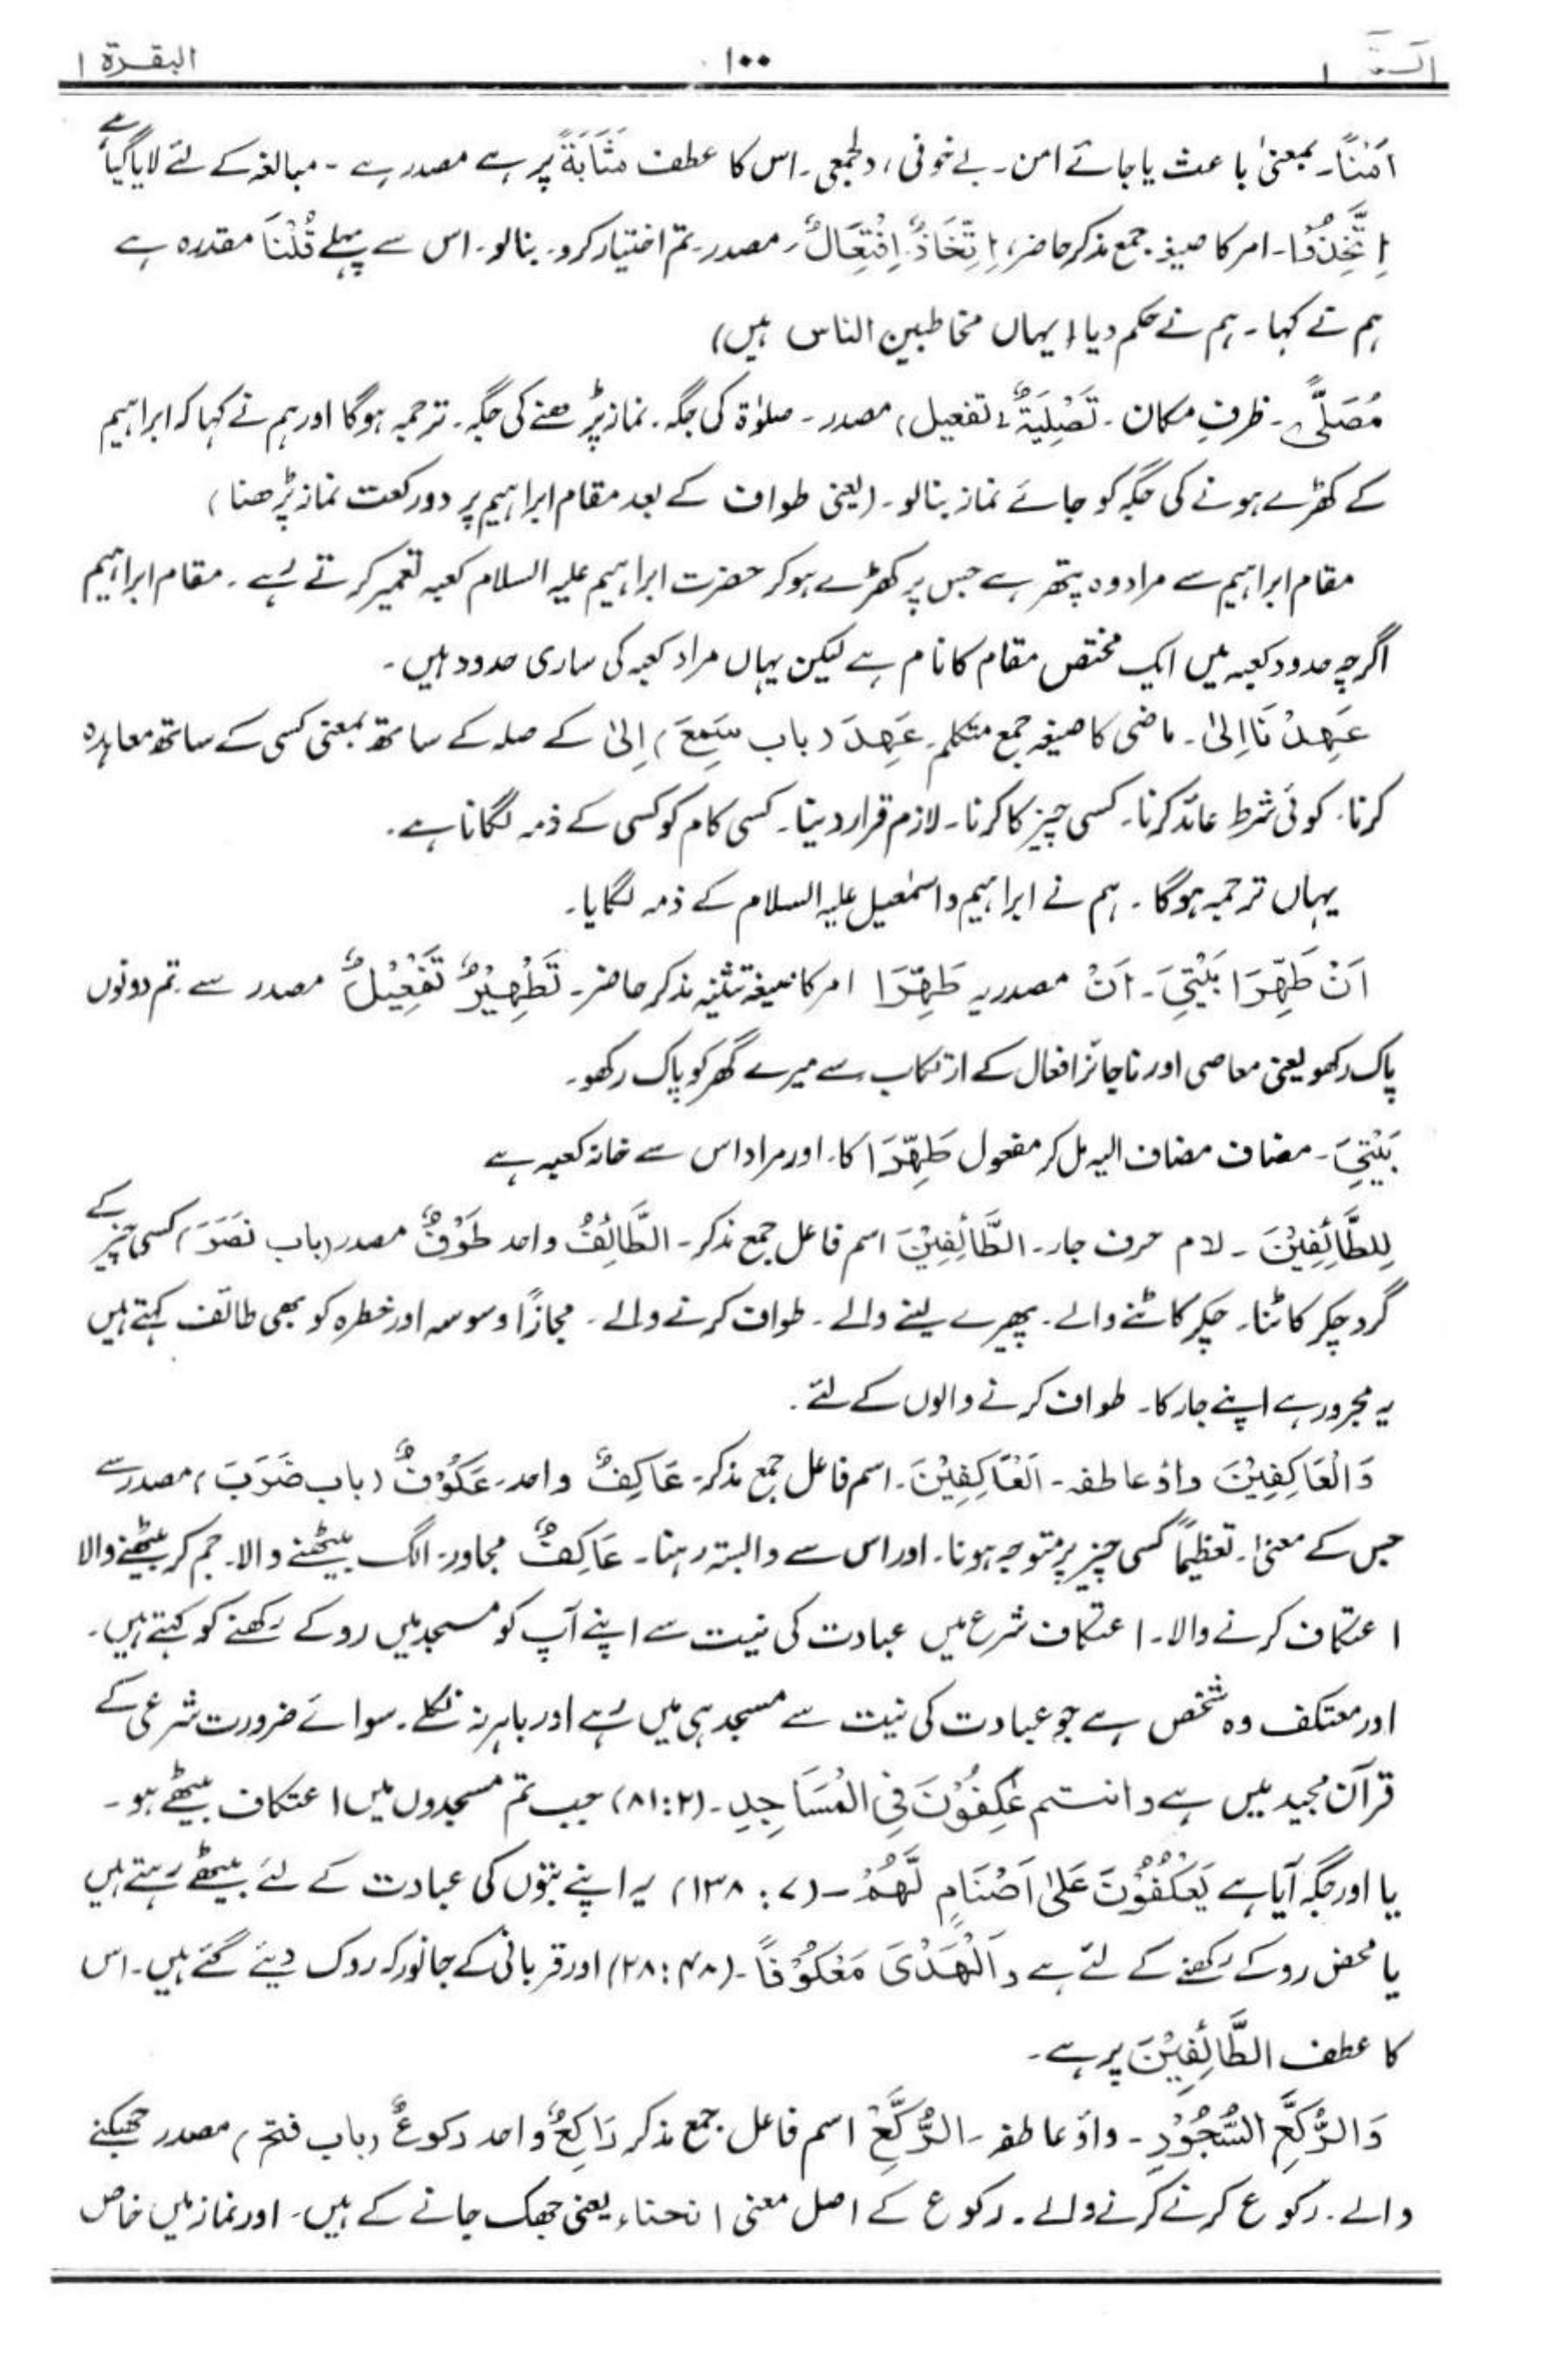 الٓمّٓ ١ ١٠٠ البقرۃ ١
اَمْنًا۔ بمعنیٰ باعث یا جائے امن۔ بے خوفی، دلجمعی۔ اس کا عطف مَثَابَۃً پر ہے مصدر ہے ۔ مبالغہ کے لئے لایا گیا ہے
اِتَّخِذُوْا۔ امر کا صیغہ جمع مذکر حاضر، اِتِّخَاذٌ۔ اِفْتِعَالٌ۔ مصدر۔ تم اختیار کرو۔ بنالو۔ اس سے پہلے قُلْنَا مقدرہ ہے
ہم نے کہا ۔ ہم نے حکم دیا (یہاں مخاطبین الناس ہیں)
مُصَلًّی۔ ظرفِ مکان ۔ تَصْلِیَۃٌ (تفعیل) مصدر۔ صلوٰۃ کی جگہ۔ نماز پڑھنے کی جگہ۔ ترجمہ ہوگا اور ہم نے کہا کہ ابراہیم
کے کھڑے ہونے کی جگہ کو جائے نماز بنالو۔ (یعنی طواف کے بعد مقام ابراہیم پر دو رکعت نماز پڑھنا)
مقام ابراہیم سے مراد وہ پتھر ہے جس پر کھڑے ہوکر حضرت ابراہیم علیہ السلام کعبہ تعمیر کرتے رہے ۔ مقام ابراہیم
اگرچہ حدود کعبہ میں ایک مختص مقام کا نام ہے لیکن یہاں مراد کعبہ کی ساری حدود ہیں ۔
عَہِدْنَا اِلیٰ۔ ماضی کا صیغہ جمع متکلم۔ عَہِدَ (باب سَمِعَ) اِلیٰ کے صلہ کے ساتھ بمعنی کسی کے ساتھ معاہدہ
کرنا۔ کوئی شرط عائد کرنا۔ کسی چیز کا کرنا۔ لازم قرار دینا۔ کسی کام کو کسی کے ذمہ لگانا ہے۔
یہاں ترجمہ ہوگا ۔ ہم نے ابراہیم و اسمٰعیل علیہ السلام کے ذمہ لگایا۔
اَنْ طَہِّرَا بَیْتِیَ۔ اَنْ مصدریہ طَہِّرَا امر کا صیغہ تثنیہ مذکر حاضر۔ تَطْہِیْرٌ تَفْعِیْلٌ مصدر سے تم دونوں
پاک رکھو یعنی معاصی اور ناجائز افعال کے ارتکاب سے میرے گھر کو پاک رکھو۔
بَیْتِیَ۔ مضاف مضاف الیہ مل کر مفعول طَہِّرَا کا۔ اور مراد اس سے خانہ کعبہ ہے
لِلطَّآئِفِیْنَ ۔ لام حرف جار۔ الطَّآئِفِیْنَ اسم فاعل جمع مذکر۔ الطَّائِفُ واحد طَوْفٌ مصدر (باب نَصَرَ) کسی چیز کے
گرد چکر کاٹنا۔ چکر کاٹنے والے۔ پھیرے لینے والے ۔ طواف کرنے والے ۔ مجازًا وسوسہ اور خطرہ کو بھی طائف کہتے ہیں
یہ مجرور ہے اپنے جار کا۔ طواف کرنے والوں کے لئے ۔
وَالْعَاکِفِیْنَ واؤ عاطفہ ۔ اَلْعَاکِفِیْنَ۔ اسم فاعل جمع مذکر۔ عَاکِفٌ واحد۔ عَکُوْفٌ (باب ضَرَبَ) مصدر سے
جس کے معنیٰ۔ تعظیمًا کسی چیز پر متوجہ ہونا۔ اور اس سے وابستہ رہنا۔ عَاکِفٌ مجاور۔ الگ بیٹھنے والا۔ جم کر بیٹھنے والا
اعتکاف کرنے والا۔ اعتکاف شرع میں عبادت کی نیت سے اپنے آپ کو مسجد میں روکے رکھنے کو کہتے ہیں۔
اور معتکف وہ شخص ہے جو عبادت کی نیت سے مسجد ہی میں رہے اور باہر نہ نکلے۔ سوائے ضرورت شرعی کے
قرآن مجید میں ہے و انتم عٰکِفُوْنَ فِی الْمَسَاجِدِ۔ (۸۱:۲) جب تم مسجدوں میں اعتکاف بیٹھے ہو۔
یا اور جگہ آیا ہے یَعْکُفُوْنَ عَلیٰ اَصْنَامٍ لَّھُمْ ۔ (۷ : ۱۳۸) یہ اپنے بتوں کی عبادت کے لئے بیٹھے رہتے ہیں
یا محض روکے رکھنے کے لئے ہے وَالْھَدْیَ مَعْکُوْفًا۔ (۲۸:۴۸) اور قربانی کے جانور کہ روک دیئے گئے ہیں۔ اس
کا عطف الطَّآئِفِیْنَ پر ہے۔
وَالرُّکَّعِ السُّجُوْدِ۔ واؤ عاطفہ ۔ الرُّکَّعِ اسم فاعل جمع مذکر رَاکِعٌ واحد رکوعٌ (باب فتح) مصدر جھکنے
والے۔ رکوع کرنے کرنے والے۔ رکوع کے اصل معنی انحناء یعنی جھک جانے کے ہیں۔ اور نماز میں خاص